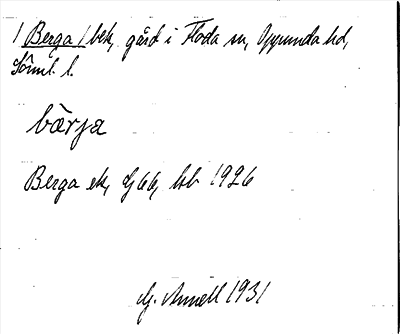 / Berga / bek, gård i Floda sn, Oppunda hd,
Söml. l.
bärja
Berga ek, G66, hb 1926
G. Annell 1931